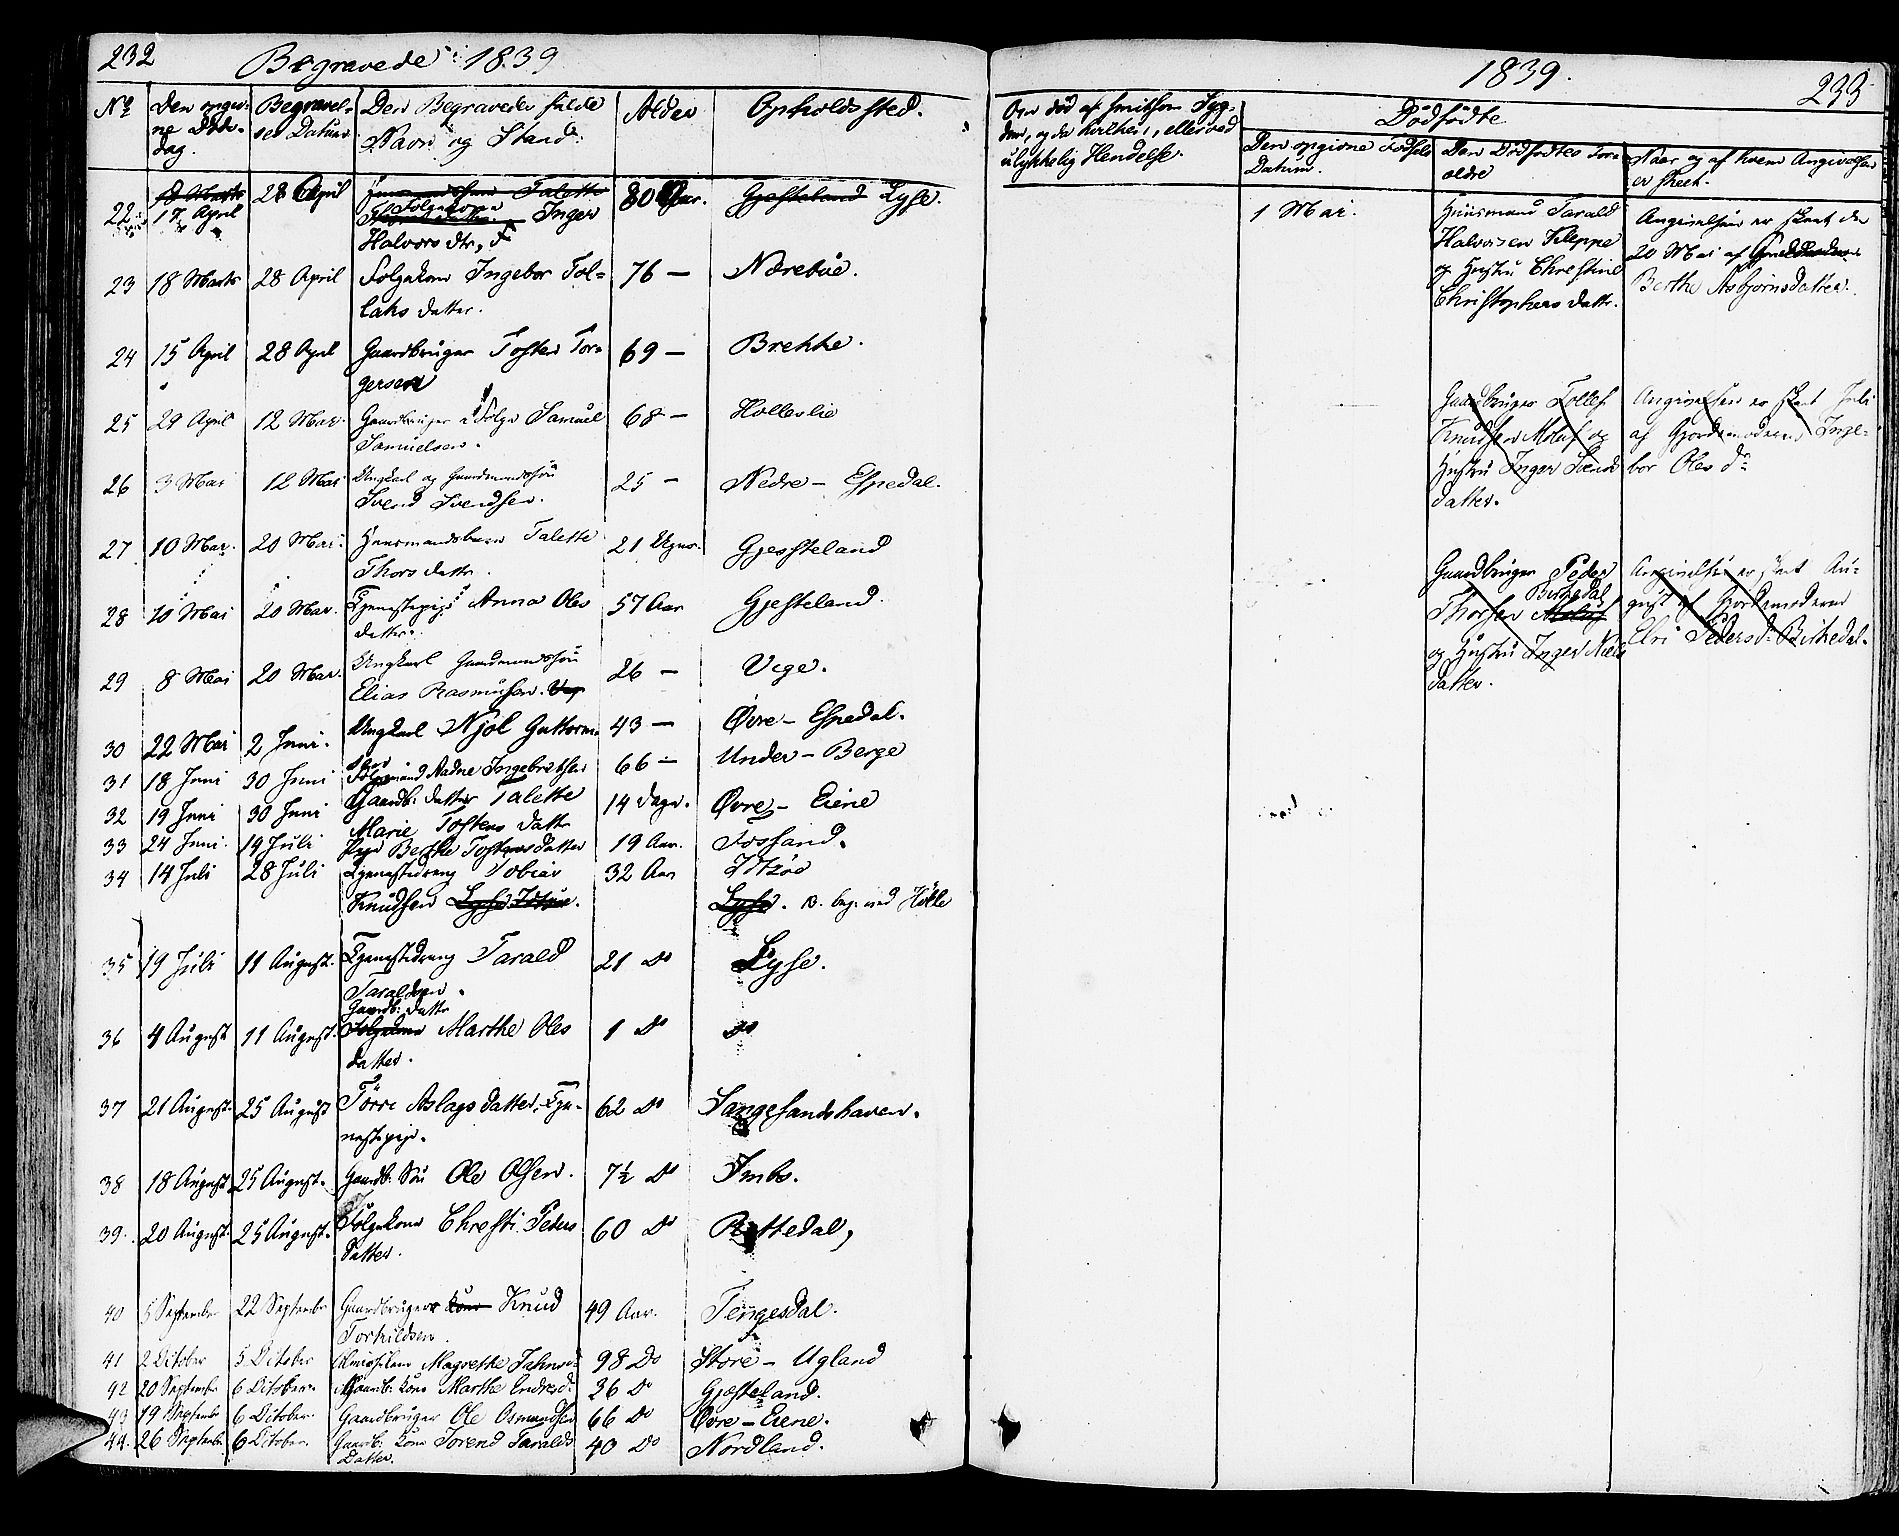 232 Begravede i 1839
No Den angiv- Begravel- Den Begravedes fulde Alder Opholdssted.
ne Døds- ses Datum Navn og Stand.
dag.
18 Marts 28 April Talette 80 Aar. Gjesteland Lyse.
22 17 April Folgekone Inger
Halvors dtr,
23 18 Marts 28 April Folgekone Ingebor Tol- 76 — Nærebøe.
laks datter.
24 15 April 28 April Gaardbruger Tosten Tor- 69 — Brekke.
gersen
25 29 April 12 Mai. Gaardbruger Samuel 68 — Holleslie
Samuelsen.
26 3 Mai 12 Mai Ungkarl og Gaardmandssøn 25 — Nedre - Espedal.
Svend Svendsen.
27 10 Mai. 20 Mai. Huusmandsbarn Talette 21 Uger. Gjesteland
Thors datter.
28 10 Mai 20 Mai. Tjenestepige Anna Ols 57 Aar Gjesteland
datter.
29 8 Mai 20 Mai. Ungkarl Gaardmandssøn 26 — Vege.
Elias Rasmusen.
30 22 Mai 2 Juni. Ungkarl Njol Guttorm- 43 — Øvre - Espedal.
sen
31 18 Juni 30 Juni Folgemand Aadne Ingebretsen 66 — Under - Berge
32 19 Juni 30 Juni Gaardb: datter Talette 14 dage. Øvre - Eiene
Marie Tostens datter
33 24 Juni. 19 Juli Pige Berthe Tostensdatter 19 Aar. Fossand.
34 14 Juli 28 Juli Tjenestedreng Tobias 32 Aar
Knudsen Lyse. Lyse.
35 19 Juli 11 August. Tjenestedreng Tarald 21 Do Lyse.
Taraldsen.
Gaardb: datter
36 4 August 11 August. Folgekone Marthe Ols 1 Do Do
datter.
37 21 August. 25 August Törre Aslags datter, Tje- 62 Do Sangesandshaven.
nestepige.
38 18 August 25 August. Gaardb: Søn Ole Olsen. 7½ Do Imbs.
39. 20 August. 25 August. Folgekone Christi Peders 60 Do
datter.
40 5 September 22 September Gaardbruger kone Knud 49 Aar. Tengesdal.
Torkildsen.
41 2 October 5 October Magrethe Jahnsd: 98 Do Store - Ugland
42 20 September 6 October. Gaardb: kone Marthe Endresd: 36 Do Gjesteland.
43 19 September 6 October. Gaardbruger Ole Osmundsen 66 Do Øvre - Eiene.
44. 26 September 6 October. Gaardb: kone Torend Taralds 40 Do Nordland.
Datter.
1839. 233
Om død af smitsom Syg- Dødfødte
dom, og da hvilken, eller ved Den opgivne Fødsels Den Dødfødtes For- Naar og af hvem Angivelsen
ulykkelig Hendelse. Datum. ældre er skeet.
1 Mai. Huusmand Tarald Angivelsen er skeet den
Halvorsen Kleppe 20 Mai af
og Hustru Christine Berthe Asbjørnsdatter.
Christophers datter.
Gaardbruger Tollef Angivelsen er skeet Juli
Knudsen Molaf og af Gjordemoderen, Inge-
Hustru Inger Svends bor Ols dr
datter.
Gaardbruger Peder Angivelsen er skeet Au-
Birkedal
Thorsen gust af Gjordemoderen
og Hustru Inger Niels Elri Pedersd: Birkedal.
datter.